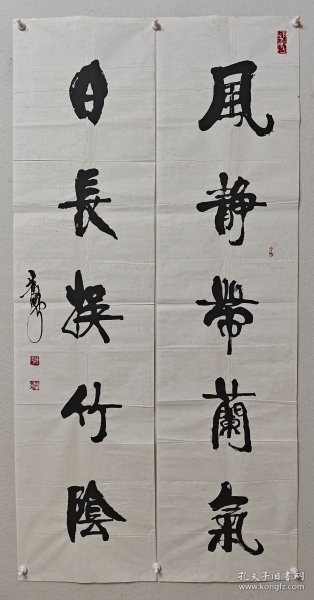 風靜帶蘭氣
日長
竹陰
孔夫子旧书网